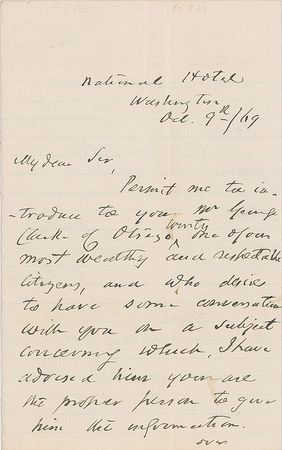 National Hotel
Washington
Oct. 9th/69
My dear Sir,
Permit me to in-
-troduce to you Mr George
Clark of Otsego County one of our
most wealthy and respectable
citizens, and who desires
to have some conversation
with you on a subject
concerning which, I have
advised him you are
the proper person to give
him the information.
over